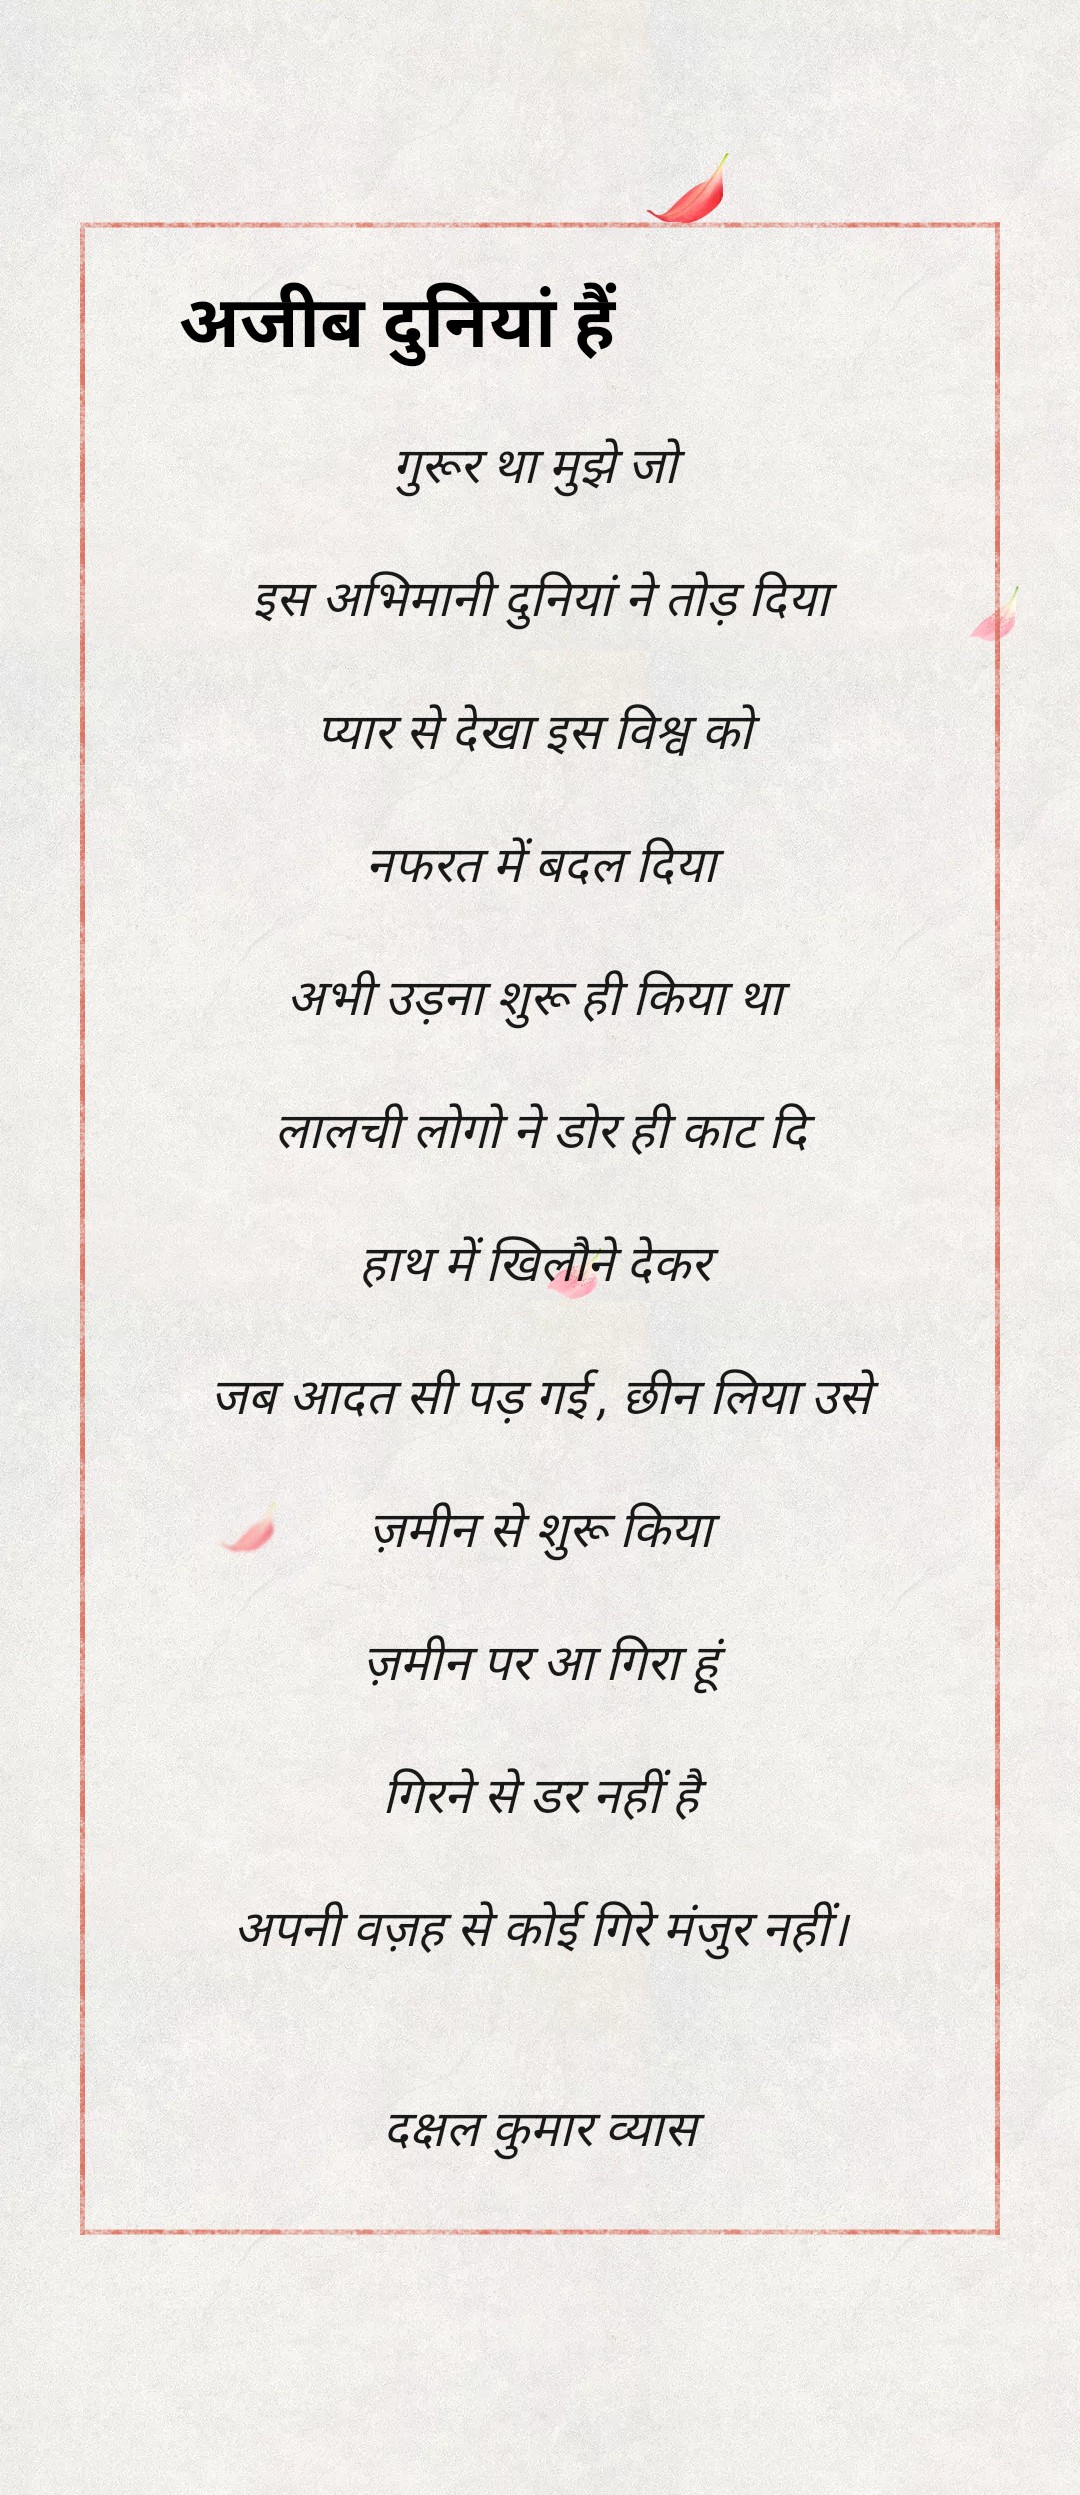 अजीब दुनियां हैं
गुरूर था मुझे जो
इस अभिमानी दुनियां ने तोड़ दिया
प्यार से देखा इस विश्व को
नफरत में बदल दिया
अभी उड़ना शुरू ही किया था
लालची लोगो ने डोर ही काट दि
हाथ में खिलौने देकर
जब आदत सी पड़ गई, छीन लिया उसे
ज़मीन से शुरू किया
ज़मीन पर आ गिरा हूं
गिरने से डर नहीं है
अपनी वज़ह से कोई गिरे मंजुर नहीं।
दक्षल कुमार व्यास